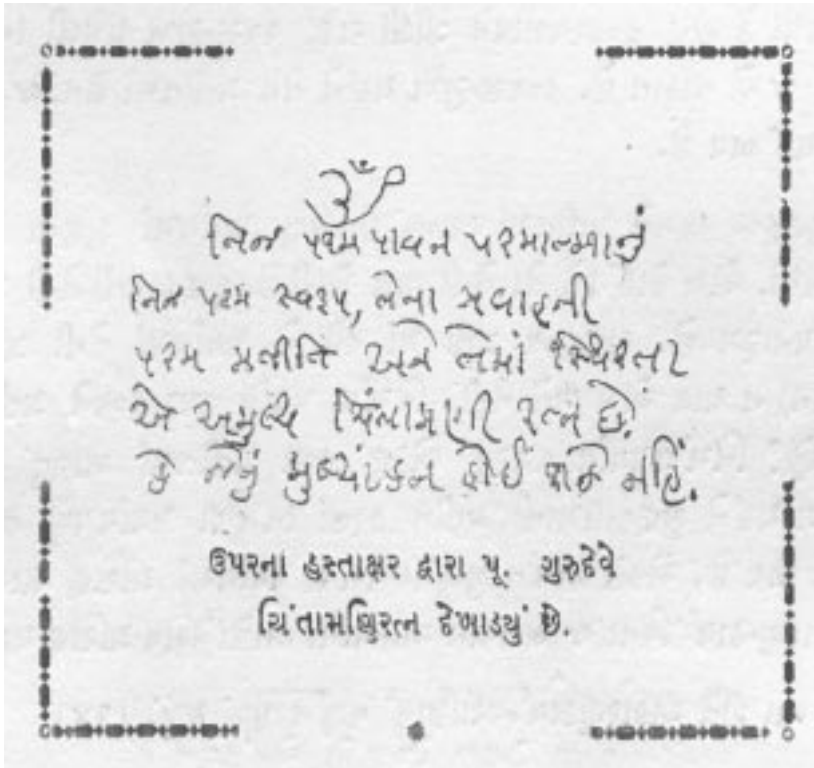 ૐ
નિજ પરમ પાવન પરમાત્માનું
નિજ પરમ સ્વરૂપ, તેના પ્રવાહની
પરમ પ્રતીતિ અને તેમાં સ્થિરતા
એ અમુલ્ય ચિંતામણી રત્ન છે.
કે જેનું મુલ્યાંકન હોઈ શકે નહિં.
ઉપરના હસ્તાક્ષર દ્વારા પૂ. ગુરુદેવે
ચિંતામણિરત્ન દેખાડ્યું છે.